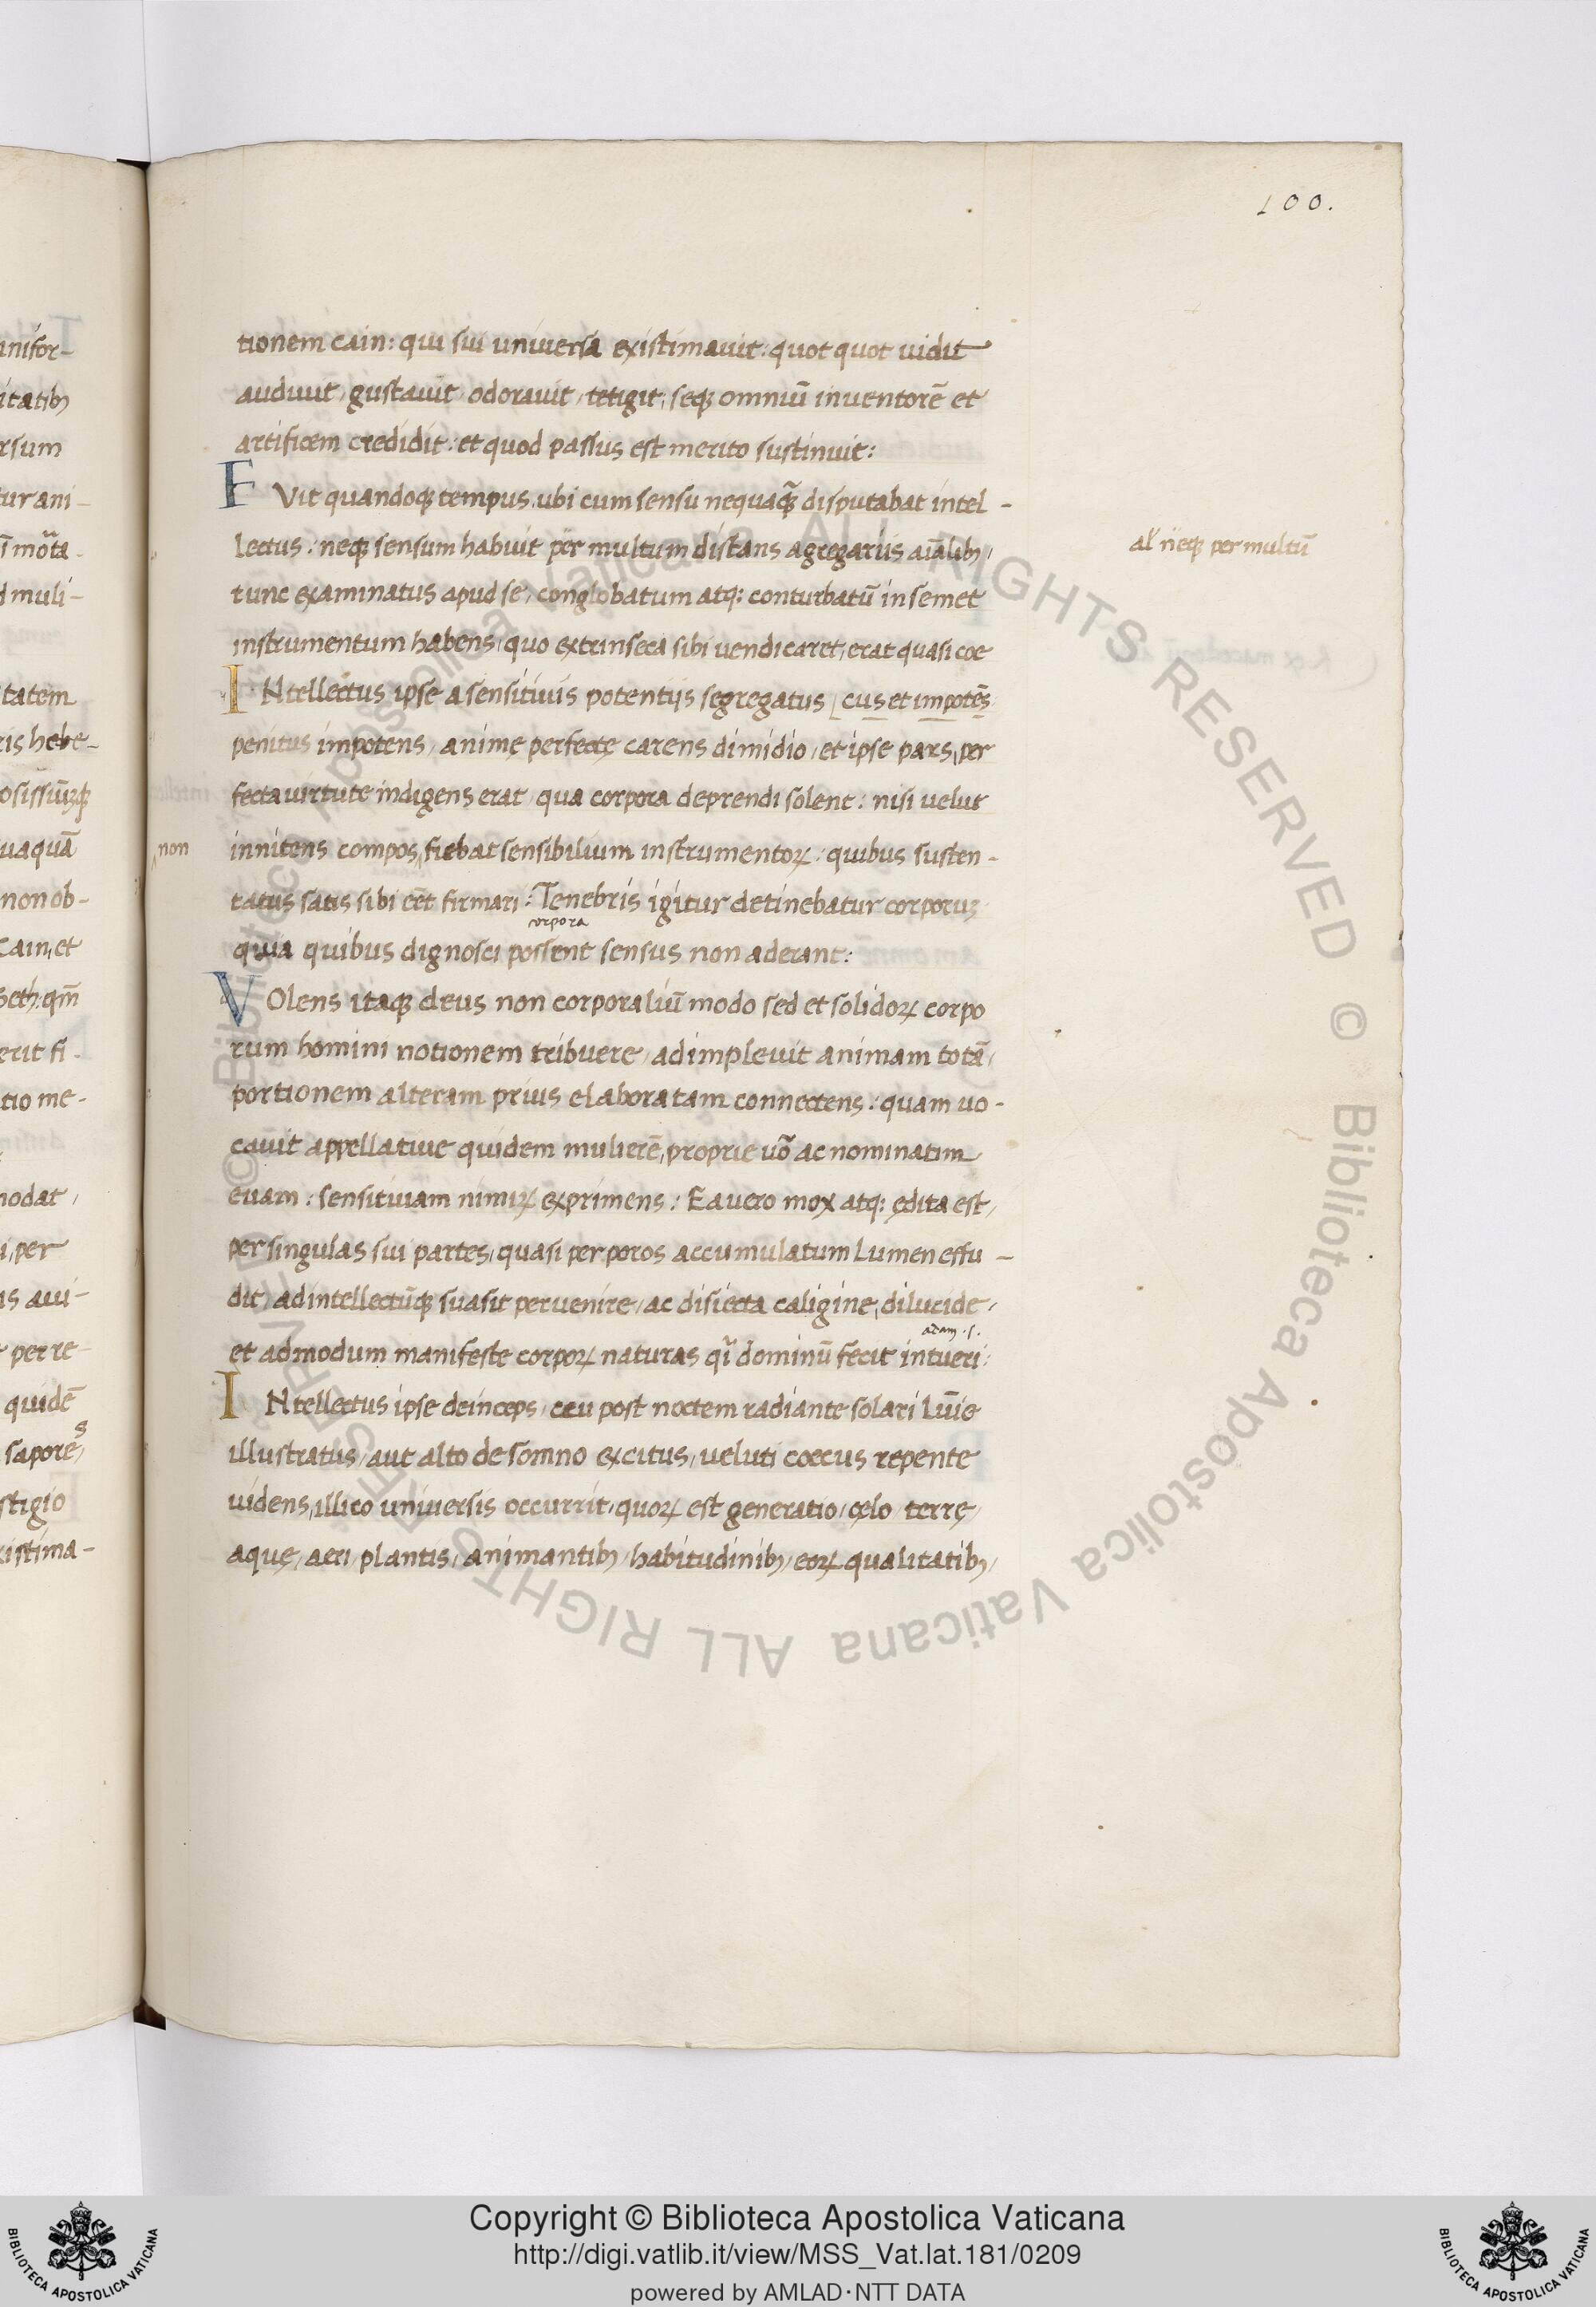 100.
tionem cain: qui sui uniuersa existimauit: quot quot uidit
audiuit, gustauit, odorauit, tetigit, seqꝫ omniū inuentorē et
artificem credidit: et quod passus est merito sustinuit:
FVit quandoqꝫ tempus, ubi cum sensu nequaqꝫ̄ disputabat intel-
lectus: neqꝫ sensum habuit per multum distans agregariis aīalibꝫ,
al' neqꝫ per multū
tunc examinatus apud se, conglobatum atq: conturbatū in semet
instrumentum habens, quo extrinseca sibi uendicaret, erat quasi coe
INtellectus ipse a sensitiuis potentijs segregatus [cus et impotēs
penitus impotens, animę perfectę carens dimidio, et ipse pars, per
fecta uirtute indigens erat, qua corpora deprendi solent: nisi uelut
non
innitens compos, fiebat sensibilium instrumentoꝝ: quibus susten-
tatus satis sibi eēt firmari: Tenebris igitur detinebatur corporuꝫ
corpora
quia quibus dignosci possent sensus non aderant:
VOlens itaqꝫ deus non corporaliū modo sed et solidoꝝ corpo
rum homini notionem tribuere, adimpleuit animam totā,
portionem alteram prius elaboratam connectens: quam uo-
cauit appellatiue quidem mulierē, proprie uō ac nominatim
euam: sensitiuam nimiꝝ exprimens: Ea uero mox atq: ędita est,
per singulas sui partes, quasi per poros accumulatum lumen effu-
dit, ad intellectūqꝫ suasit peruenire, ac disiecta caligine, dilucide,
adam .s.
et admodum manifeste corpoꝝ naturas qī dominū fecit intueri:
INtellectus ipse deinceps, ceu post noctem radiante solari lūīe
illustratus, aut alto de somno excitus, ueluti coecus repente
uidens, illico uniuersis occurrit, quoꝝ est generatio, cęlo, terrę,
aquę, aeri, plantis, animantibꝫ, habitudinibꝫ, eoꝝ qualitatibꝫ,
© Biblioteca Apostolica Vaticana ALL RIGHTS RESERVED
© Biblioteca Apostolica Vaticana ALL RIGHTS RESERVED
Copyright © Biblioteca Apostolica Vaticana
http://digi.vatlib.it/view/MSS_Vat.lat.181/0209
powered by AMLAD·NTT DATA
BIBLIOTECA APOSTOLICA VATICANA
BIBLIOTECA APOSTOLICA VATICANA